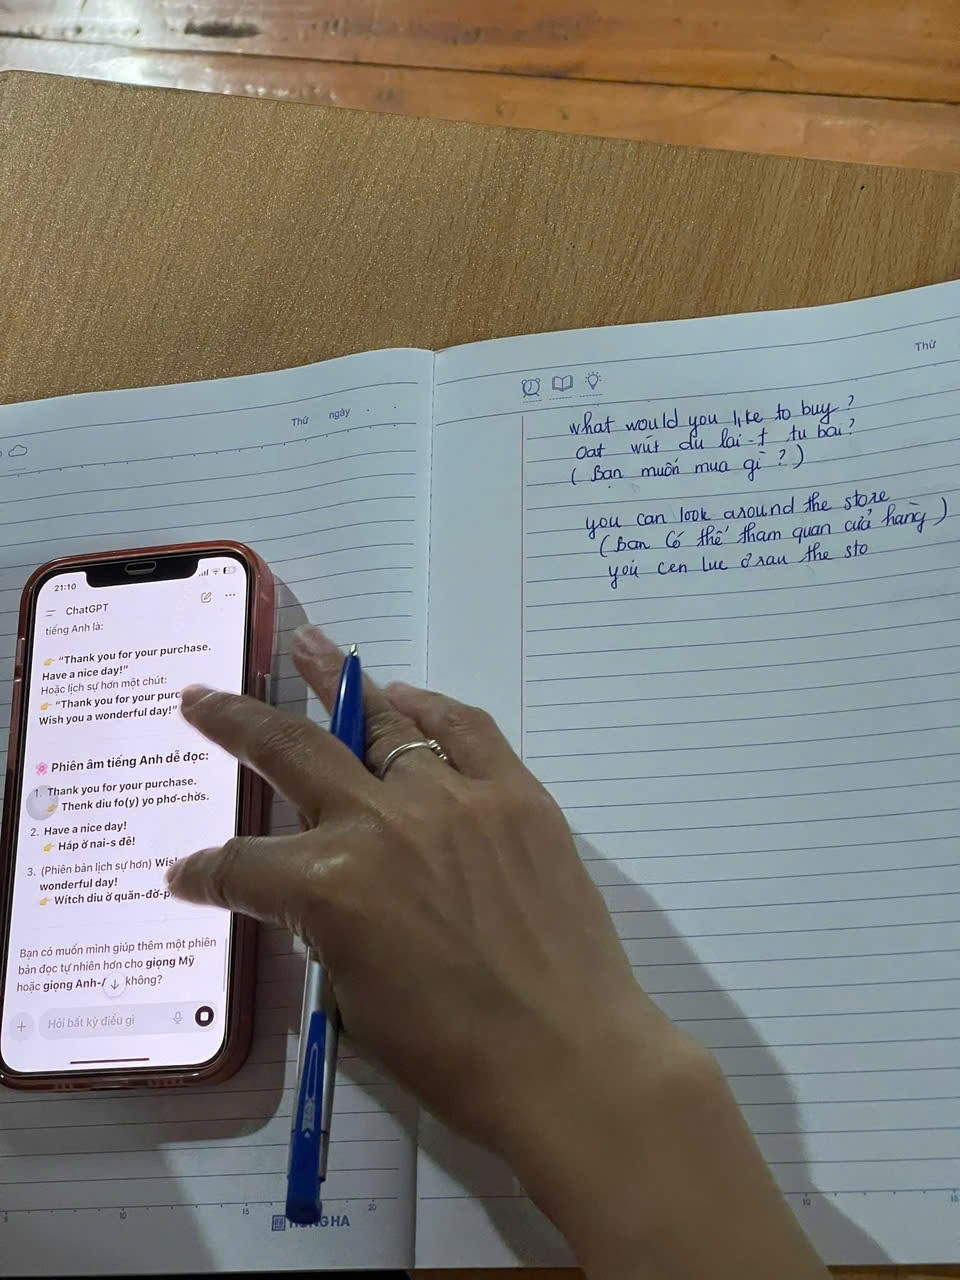 Thứ
ngày
Thứ
what would you like to buy?
oat wút du lai-t tu bai?
(Bạn muốn mua gì?)
you can look around the store
(Bạn có thể tham quan cửa hàng)
you cen luc ở rau the sto
21:10
ChatGPT
tiếng Anh là:
👉 "Thank you for your purchase.
Have a nice day!"
Hoặc lịch sự hơn một chút:
👉 "Thank you for your purc
Wish you a wonderful day!"
🌸 Phiên âm tiếng Anh dễ đọc:
1. Thank you for your purchase.
👉 Thenk diu fo(y) yo phơ-chởs.
2. Have a nice day!
👉 Háp ở nai-s đê!
3. (Phiên bản lịch sự hơn) Wis
wonderful day!
👉 Wítch diu ở quăn-đờ-p
Bạn có muốn mình giúp thêm một phiên
bản đọc tự nhiên hơn cho giọng Mỹ
hoặc giọng Anh-A không?
Hỏi bất kỳ điều gì
5 10 15 20
HONG HA
10